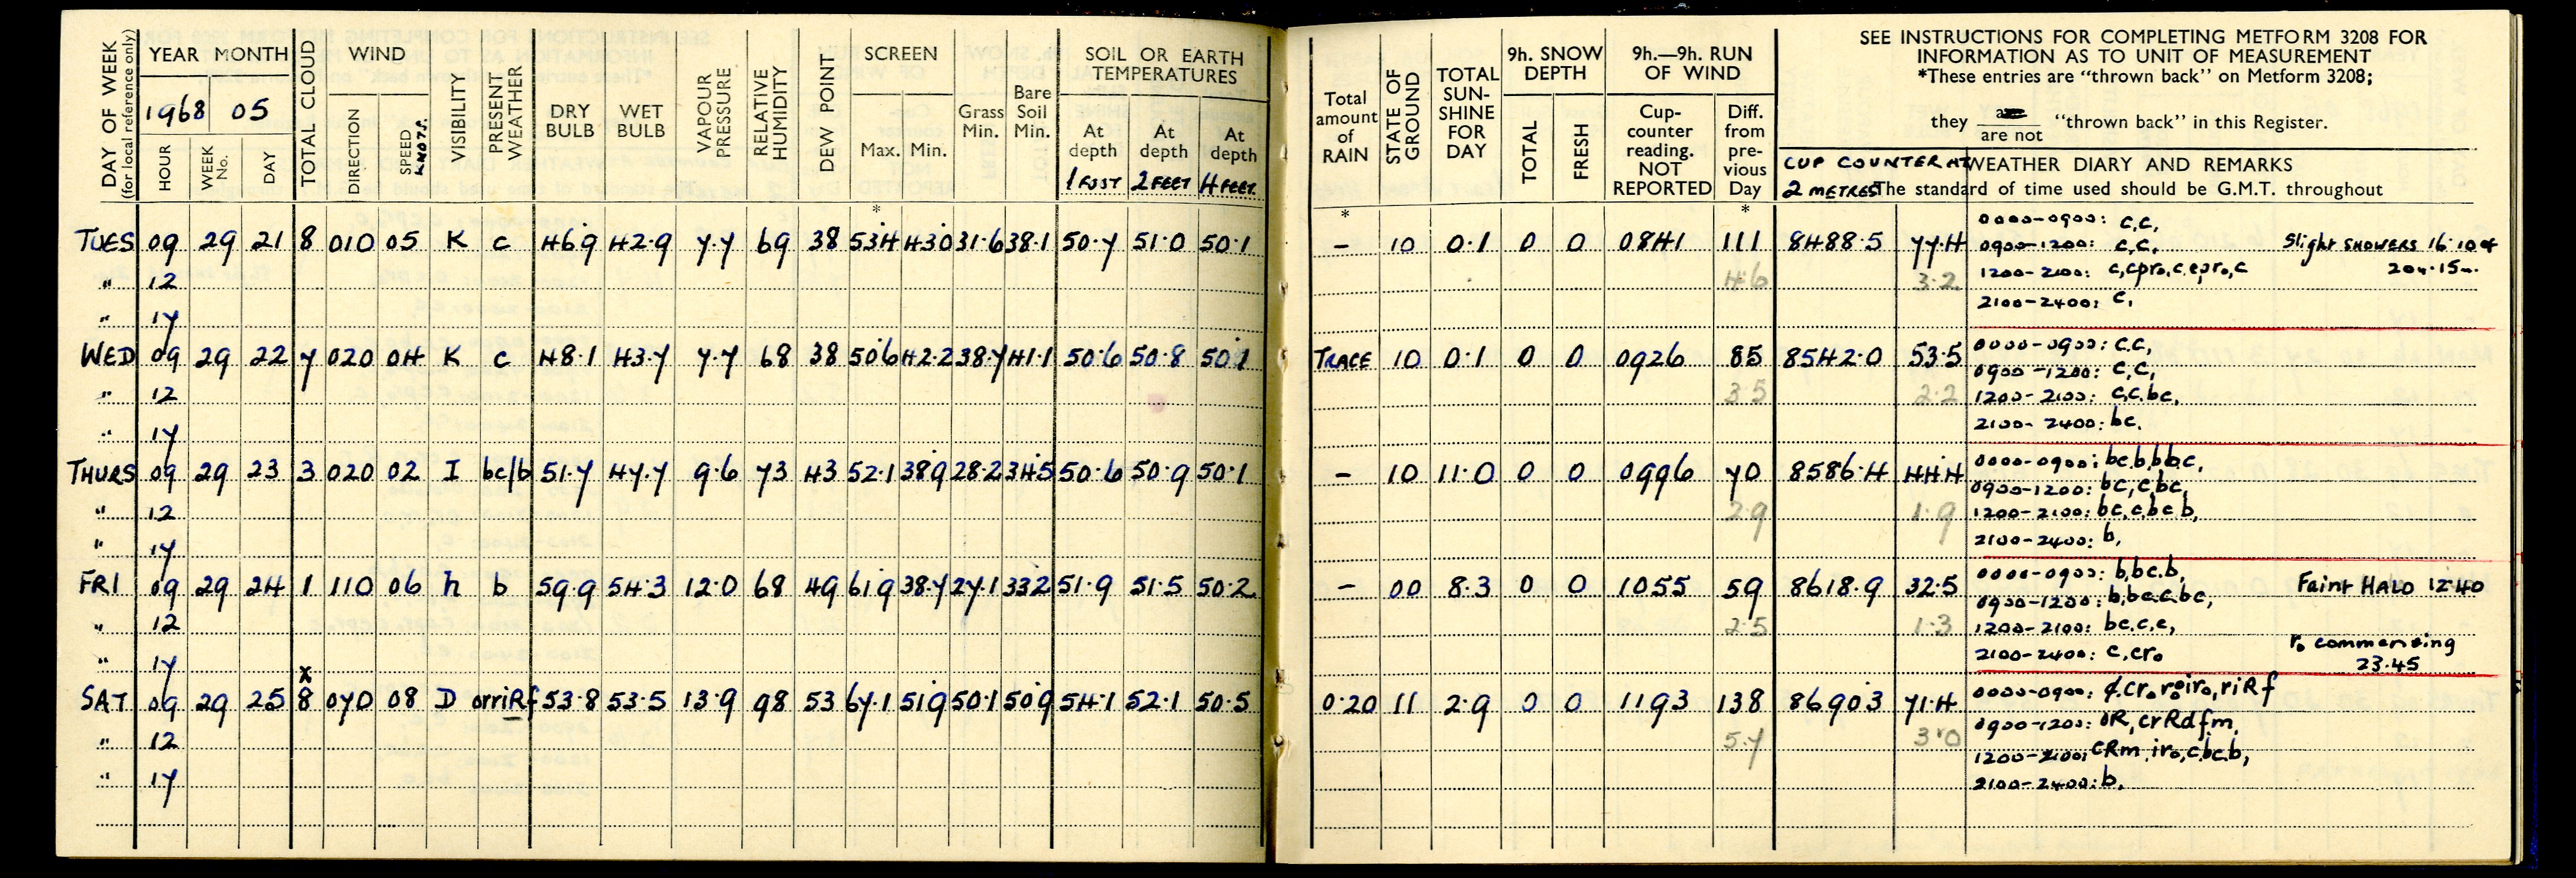 DAY OF WEEK
(for local reference only)
YEAR MONTH
1968 05
HOUR
WEEK No.
DAY
TOTAL CLOUD
WIND
DIRECTION
SPEED
KNOTS.
VISIBILITY
PRESENT WEATHER
DRY BULB
WET BULB
VAPOUR PRESSURE
RELATIVE HUMIDITY
DEW POINT
SCREEN
Max. Min.
Grass Min.
Bare Soil Min.
SOIL OR EARTH
TEMPERATURES
At depth 1 FOOT
At depth 2 FEET
At depth 4 FEET.
*
TUES 09 29 21 8 010 05 K c 46.9 42.9 7.7 69 38 53.4 43.0 31.6 38.1 50.7 51.0 50.1
" 12
" 17
WED 09 29 22 7 020 04 K c 48.1 43.7 7.7 68 38 50.6 42.2 38.7 41.1 50.6 50.8 50.1
" 12
" 17
THURS 09 29 23 3 020 02 I bc/b 51.7 47.7 9.6 73 43 52.1 38.9 28.2 34.5 50.6 50.9 50.1
" 12
" 17
FRI 09 29 24 1 110 06 h b 59.9 54.3 12.0 68 49 61.9 38.7 27.1 33.2 51.9 51.5 50.2
" 12
" 17
x
SAT 09 29 25 8 070 08 D orriRf 53.8 53.5 13.9 98 53 67.1 51.9 50.1 50.9 54.1 52.1 50.5
" 12
" 17
Total amount of RAIN
STATE OF GROUND
TOTAL SUN-SHINE FOR DAY
9h. SNOW DEPTH
TOTAL
FRESH
9h.—9h. RUN OF WIND
Cup-counter reading. NOT REPORTED
Diff. from pre-vious Day
SEE INSTRUCTIONS FOR COMPLETING METFORM 3208 FOR
INFORMATION AS TO UNIT OF MEASUREMENT
*These entries are "thrown back" on Metform 3208;
they are / are not "thrown back" in this Register.
CUP COUNTER AT
2 METRES
WEATHER DIARY AND REMARKS
The standard of time used should be G.M.T. throughout
* *
– 10 0.1 0 0 0841 111 8488.5 77.4
4.6 3.2
0000-0900: c,c,
0900-1200: c,c,
1200-2100: c,cpr₀,c,cpr₀,c
2100-2400: c,
Slight SHOWERS 16.10
TRACE 10 0.1 0 0 0926 85 8542.0 53.5
3.5 2.2
0000-0900: c.c,
0900-1200: c,c,
1200-2100: c,c.bc,
2100-2400: bc.
– 10 11.0 0 0 0996 70 8586.4 44.4
2.9 1.9
0000-0900: bc.b,b,bc,
0900-1200: bc,c,bc,
1200-2100: bc,c,bc b,
2100-2400: b,
– 00 8.3 0 0 1055 59 8618.9 32.5
2.5 1.3
0000-0900: b,bc.b,
0900-1200: b,bc.c.bc,
1200-2100: bc.c.c,
2100-2400: c,cr₀
Faint HALO 12.40
r₀ commencing
23.45
0.20 11 2.9 0 0 1193 138 8690.3 71.4
5.7 3.0
0000-0900: cr₀ r₀ir₀,riRf
0900-1200: oR,crRdfm,
1200-2100: cRm.ir₀,c,bc.b,
2100-2400: b.